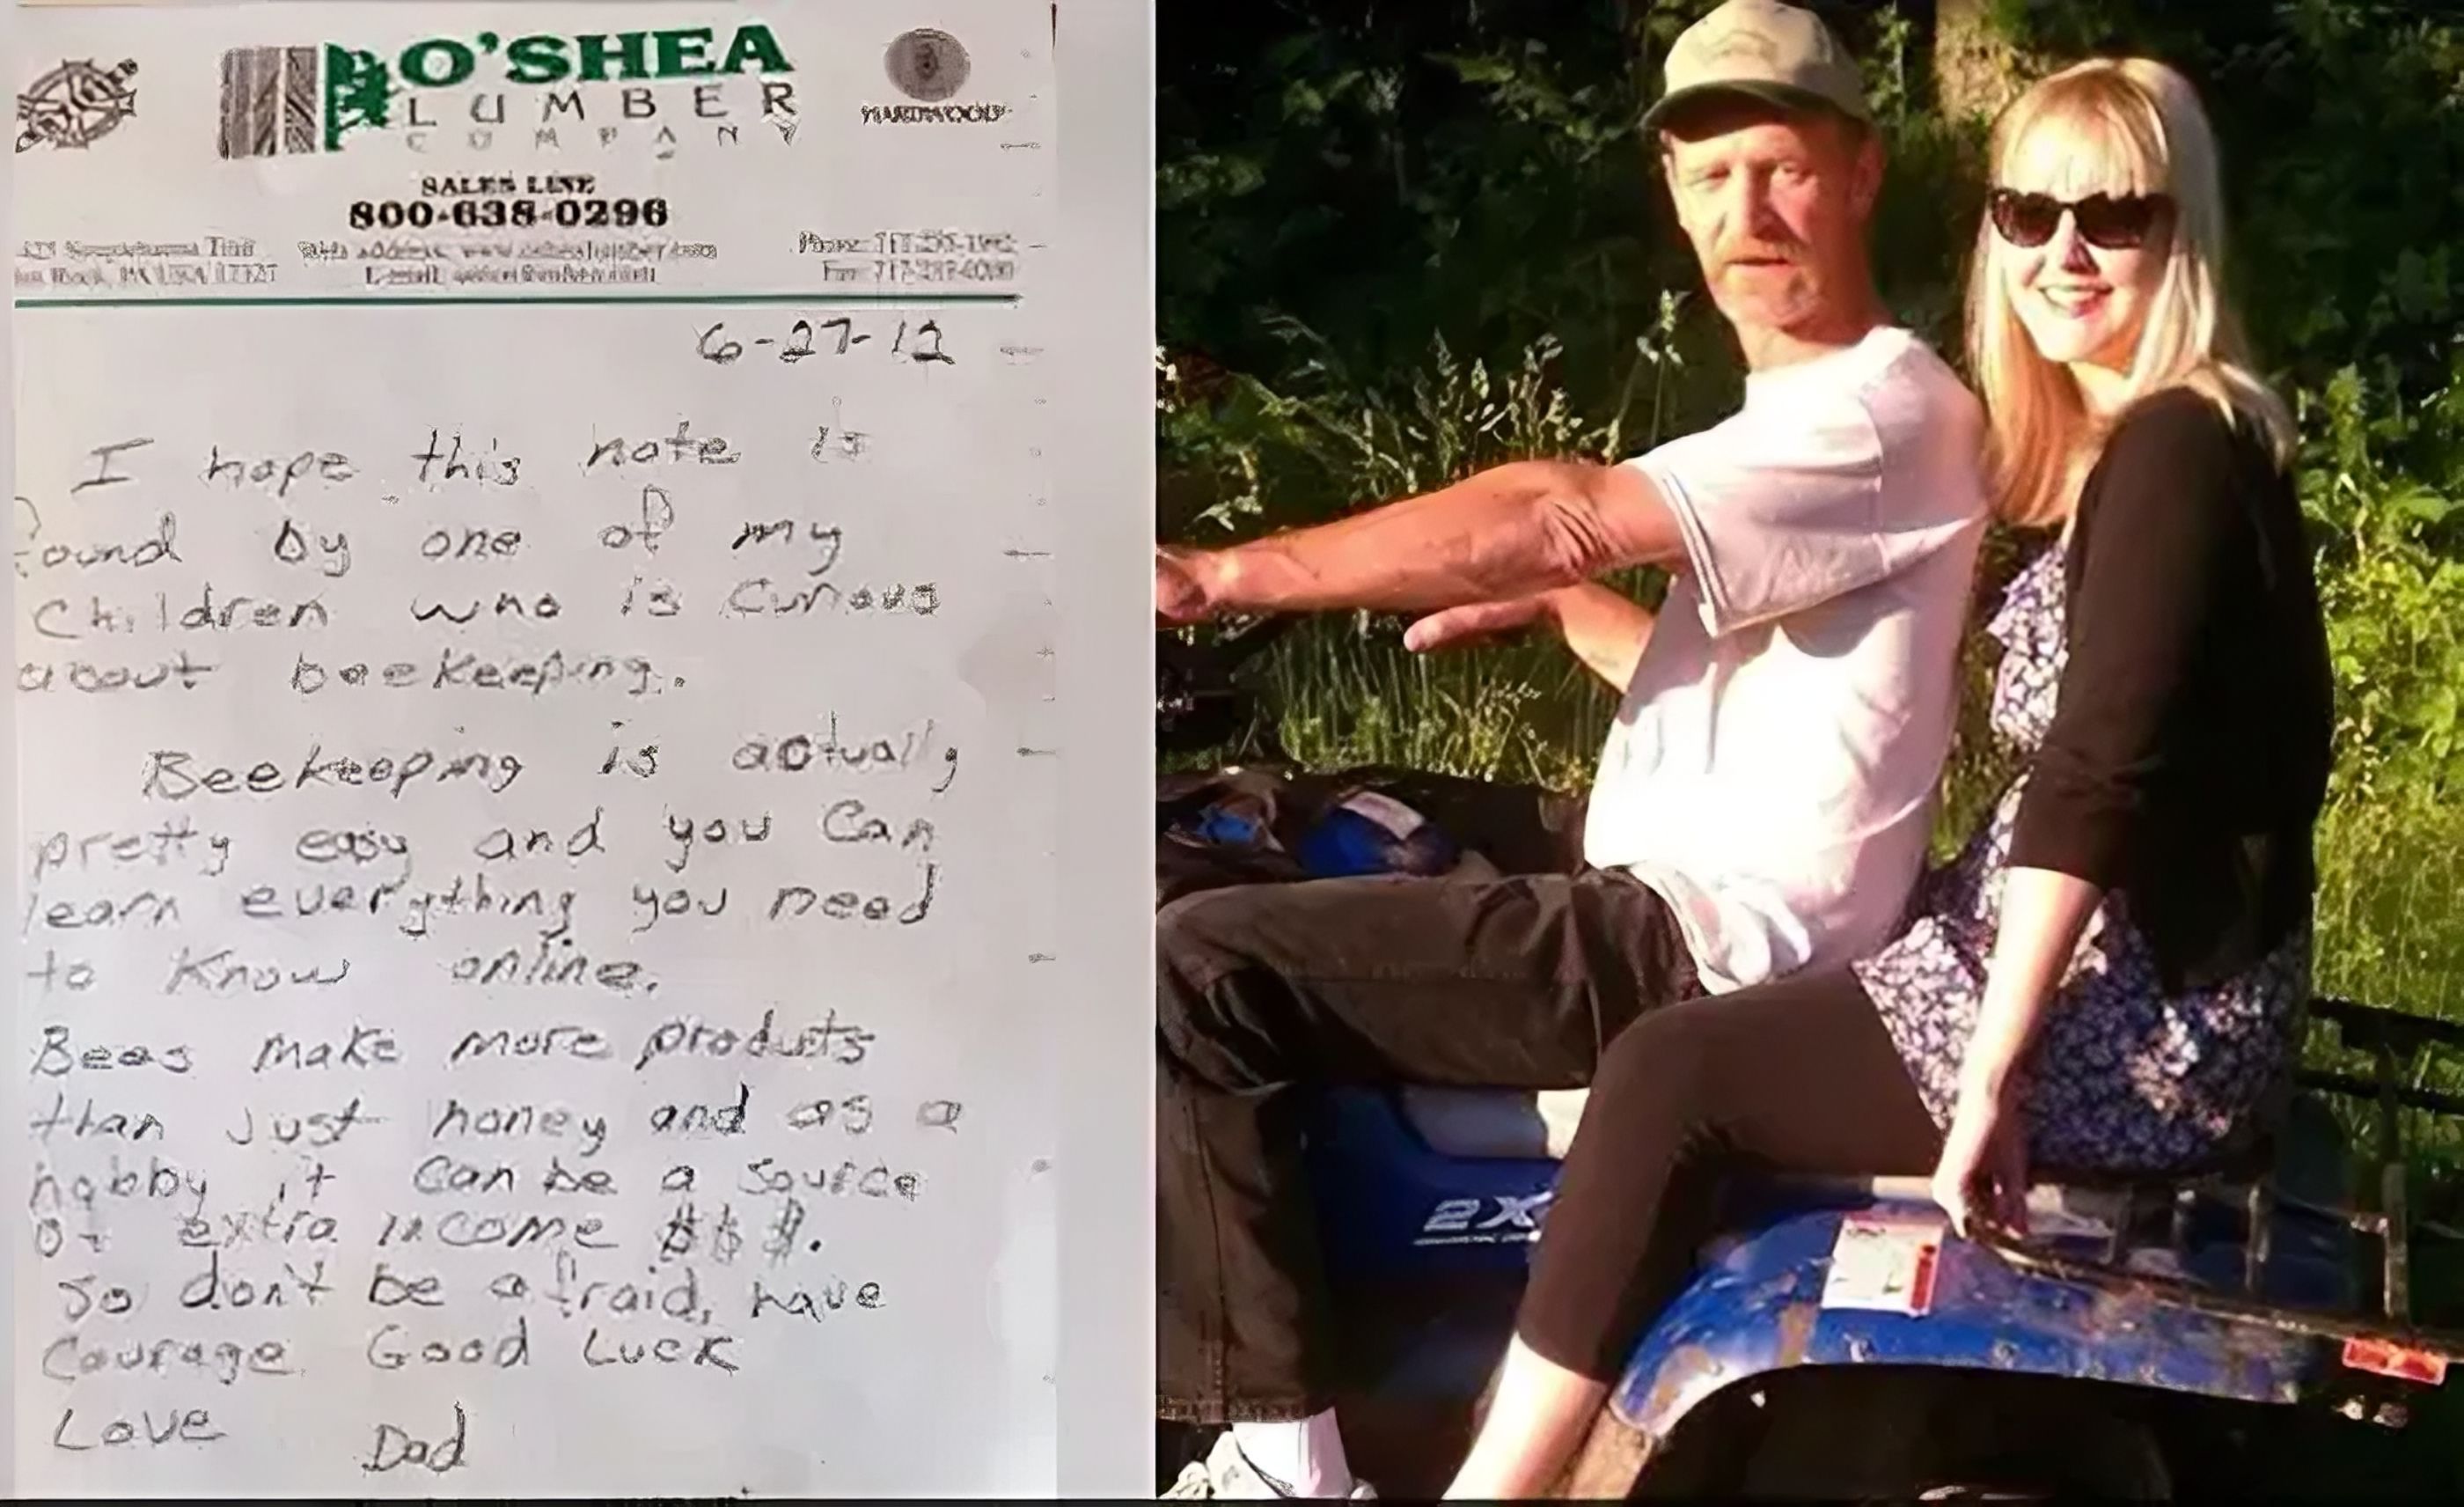 O'SHEA
LUMBER
COMPANY
HARDWOODS
SALES LINE
800-638-0296
6-27-12
I hope this note is
found by one of my
Children who is Curious
about beekeeping.
Beekeeping is actually
pretty easy and you Can
learn everything you need
to Know online.
Bees make more products
than just honey and as a
hobby it Can be a source
of extra income $$$.
So don't be afraid, have
Courage Good Luck
Love Dad
2X